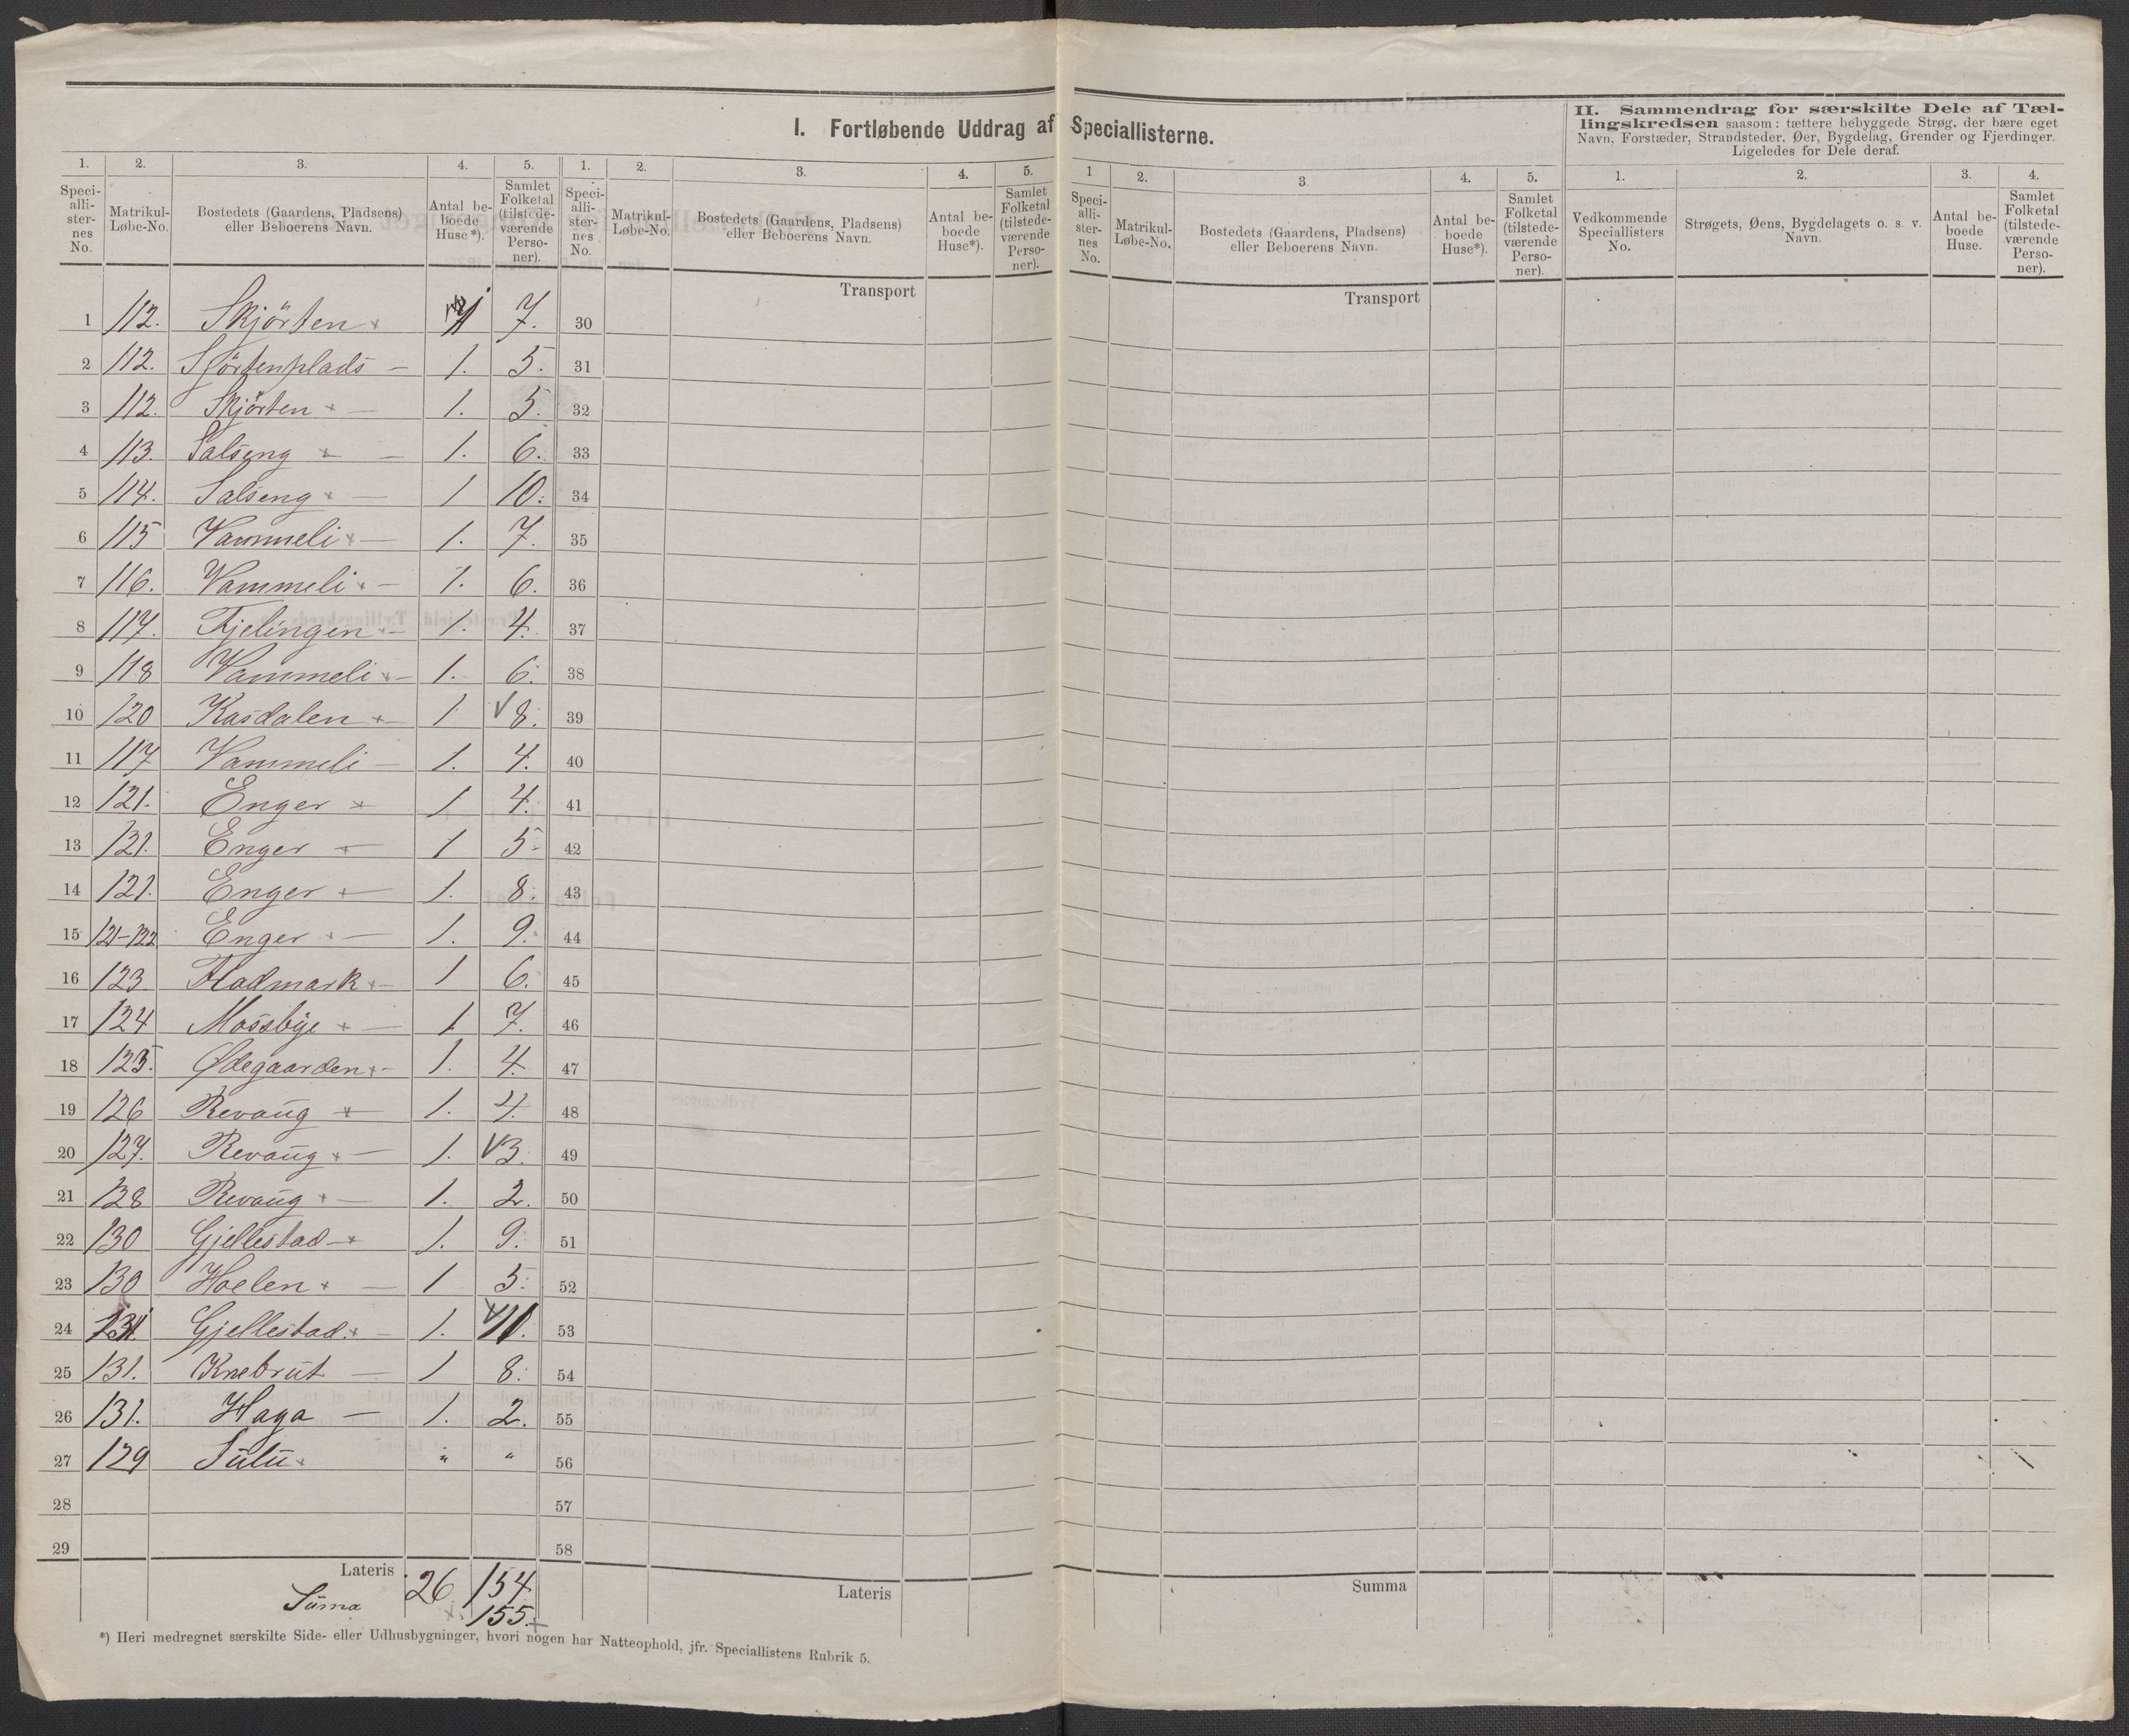 I. Fortløbende Uddrag af Speciallisterne.
II. Sammendrag for særskilte Dele af Tæl-
lingskredsen saasom: tættere bebyggede Strøg, der bære eget
Navn, Forstæder, Strandsteder, Øer, Bygdelag, Grender og Fjerdinger.
Ligeledes for Dele deraf.
1. 2. 3. 4. 5. 1. 2. 3. 4. 5. 1 2. 3. 4. 5. 1. 2. 3. 4.
Speci-alli-ster-nes No. Matrikul-Løbe-No. Bostedets (Gaardens, Pladsens) eller Beboerens Navn. Antal be-boede Huse*). Samlet Folketal (tilstede-værende Perso-ner).
Speci-alli-ster-nes No. Matrikul-Løbe-No. Bostedets (Gaardens, Pladsens) eller Beboerens Navn. Antal be-boede Huse*). Samlet Folketal (tilstede-værende Perso-ner).
Speci-alli-ster-nes No. Matrikul-Løbe-No. Bostedets (Gaardens, Pladsens) eller Beboerens Navn. Antal be-boede Huse*). Samlet Folketal (tilstede-værende Perso-ner).
Vedkommende Speciallisters No. Strøgets, Øens, Bygdelagets o. s. v. Navn. Antal be-boede Huse. Samlet Folketal (tilstede-værende Perso-ner).
Transport Transport
1 112. Skjörten 1 7. 30
2 112. Sjörtenplads – 1. 5. 31
3 112. Skjörten – 1. 5. 32
4 113. Salseng – 1. 6. 33
5 114. Salseng – 1 10. 34
6 115 Vammeli – 1. 7. 35
7 116. Vammeli – 1. 6. 36
8 117. Fjelingen – 1. 4. 37
9 118 Vammeli – 1. 6. 38
10 120 Kasdalen – 1 8. 39
11 117 Vammeli – 1. 4. 40
12 121. Enger – 1 4. 41
13 121. Enger – 1 5. 42
14 121. Enger – 1. 8. 43
15 121–122 Enger – 1. 9. 44
16 123 Fladmark – 1 6. 45
17 124 Mossbye – 1 7. 46
18 125. Ødegaarden – 1. 4. 47
19 126 Revaug – 1. 4. 48
20 127. Revaug – 1. 3. 49
21 128 Revaug – 1. 2. 50
22 130 Gjellestad – 1. 9. 51
23 130 Hoelen – 1 5. 52
24 131 Gjellestad – 1. 11. 53
25 131. Knebrut – 1 8. 54
26 131. Haga – 1. 2. 55
27 129 Sulu " " 56
28 57
29 58
Lateris 26 154 Lateris Summa
Suma 155
*) Heri medregnet særskilte Side- eller Udhusbygninger, hvori nogen har Natteophold, jfr. Speciallistens Rubrik 5.